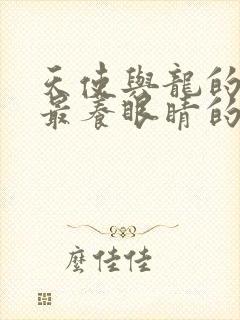 天使與龍的
最養眼睛的
麼佳佳